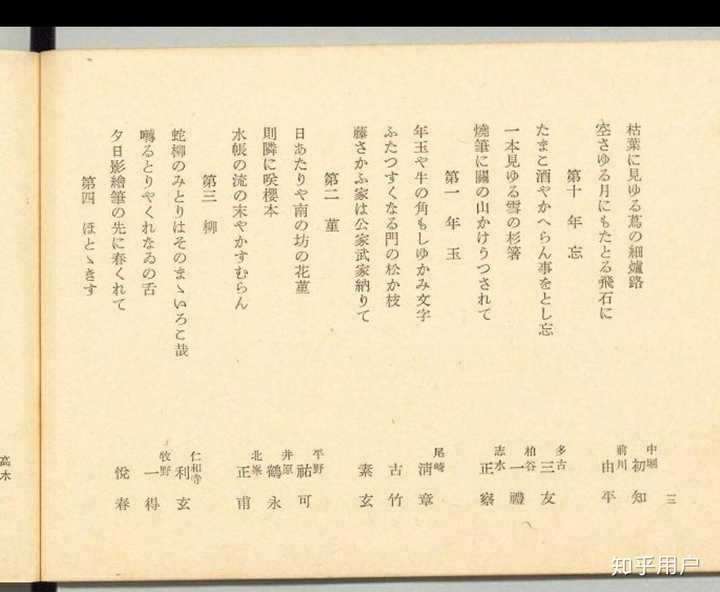 三
枯葉に見ゆる蔦の細爐路 中堀 初知
空さゆる月にもたとる飛石に 前川 由平
第十 年忘
たまこ酒やかへらん事をとし忘 多古 三友
一本見ゆる雪の杉箸 柏谷 一禮
燒筆に關の山かけうつされて 志水 正察
第一 年玉
年玉や牛の角もしゆかみ文字 尾崎 淸章
ふたつすくなる門の松か枝 古竹
藤さかふ家は公家武家納りて 素玄
第二 菫
日あたりや南の坊の花菫 平野 祐可
則隣に咲櫻本 井原 鶴永
水帳の流の末やかすむらん 北峯 正甫
第三 柳
蛇柳のみとりはそのまゝいろこ哉 仁和寺 利玄
囀るとりやくれなゐの舌 牧野 一得
夕日影繪筆の先に春くれて 悅春
第四 ほとゝきす
高木
知乎用户